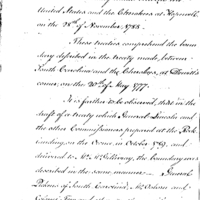 United States and the Cherokees at Hopewell
on the 28th of November, 1785.
These treaties comprehend the boun
dary described in the treaty made between
South Carolina and the Cherokees, at
corner, on the 20th of May 1777.
It is further to be observed, that in the
draft of a treaty which General Lincoln and
the other Commissioners prepared at the Rock
landing on the Oconee in October 1789, and
delivered to Mr. McGillivray, the boundary was
described in the same manner. General
Pickens of South Carolina,